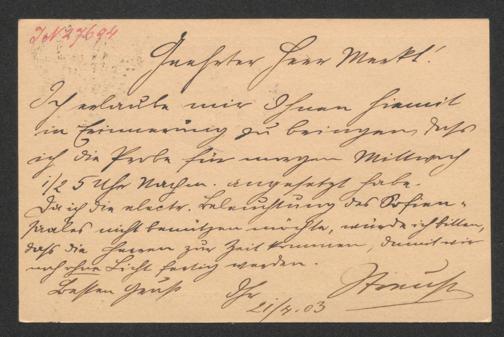 I N 27694
Geehrter Herr Merkt!
Ich erlaube mir Ihnen hiemit
in Erinnerung zu bringen, dass
ich die Probe für morgen Mittwoch
1/2 5 Uhr Nachm. angesetzt habe.
Da ich die electr. Beleuchtung des Sofien-
saales nicht benützen möchte, würde ich bitten,
dass die Herren zur Zeit kommen, damit wir
noch ohne Licht fertig werden.
Besten Gruß Ihr
21/4. 03